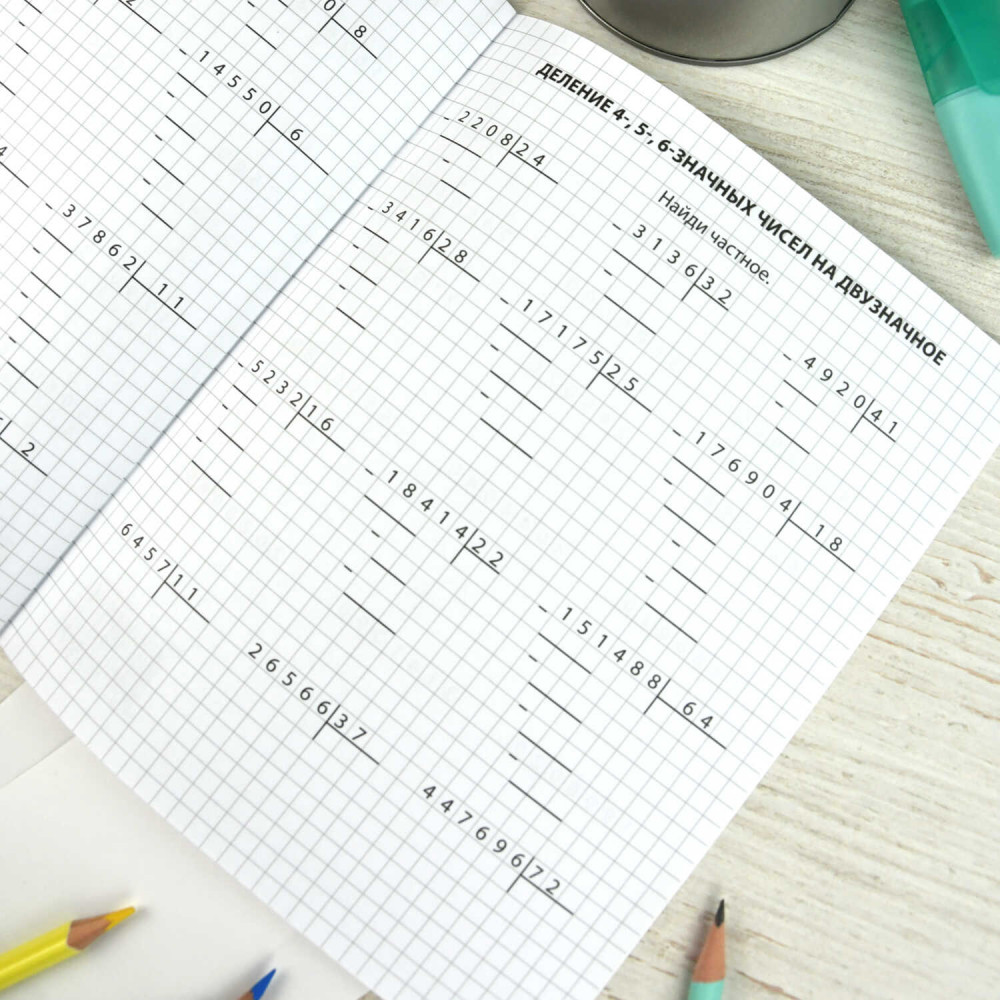 0 8
1 4 5 5 0 6
3 7 8 6 2 1 1
2
ДЕЛЕНИЕ 4-, 5-, 6-ЗНАЧНЫХ ЧИСЕЛ НА ДВУЗНАЧНОЕ
Найди частное.
2 2 0 8 2 4
3 1 3 6 3 2
4 9 2 0 4 1
3 4 1 6 2 8
1 7 1 7 5 2 5
1 7 6 9 0 4 1 8
5 2 3 2 1 6
1 8 4 1 4 2 2
1 5 1 4 8 8 6 4
6 4 5 7 1 1
2 6 5 6 6 3 7
4 4 7 6 9 6 7 2